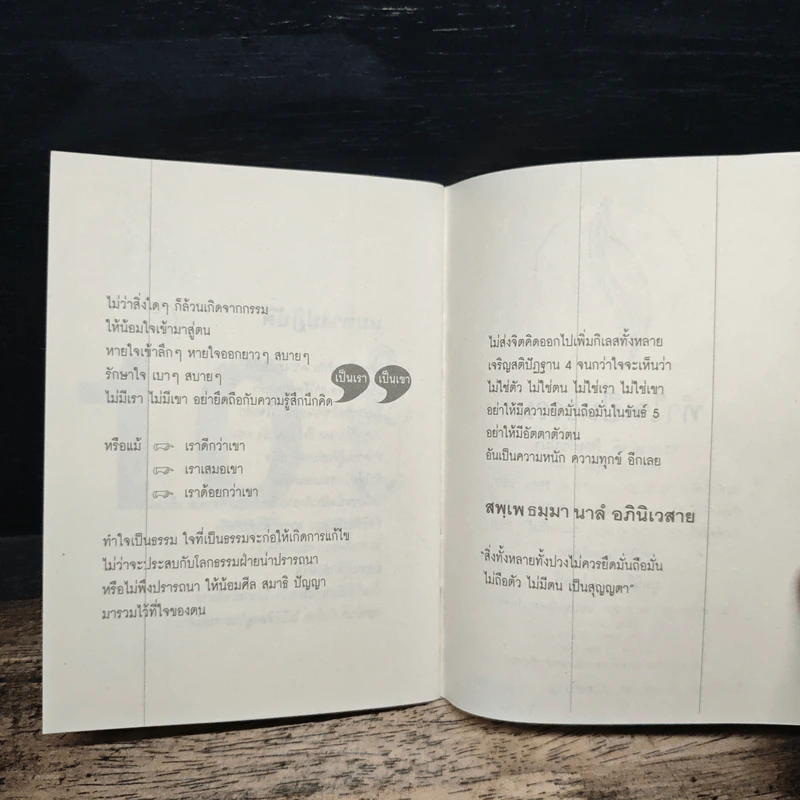 ไม่ว่าสิ่งใดๆ ก็ล้วนเกิดจากกรรม
ให้น้อมใจเข้ามาสู่ตน
หายใจเข้าลึกๆ หายใจออกยาวๆ สบายๆ
รักษาใจ เบาๆ สบายๆ
ไม่มีเรา ไม่มีเขา อย่ายึดถือกับความรู้สึกนึกคิด เป็นเรา เป็นเขา
หรือแม้ เราดีกว่าเขา
เราเสมอเขา
เราด้อยกว่าเขา
ทำใจเป็นธรรม ใจที่เป็นธรรมจะก่อให้เกิดการแก้ไข
ไม่ว่าจะประสบกับโลกธรรมฝ่ายน่าปรารถนา
หรือไม่พึงปรารถนา ให้น้อมศีล สมาธิ ปัญญา
มารวมไว้ที่ใจของตน
ไม่ส่งจิตคิดออกไปเพิ่มกิเลสทั้งหลาย
เจริญสติปัฏฐาน 4 จนกว่าใจจะเห็นว่า
ไม่ใช่ตัว ไม่ใช่ตน ไม่ใช่เรา ไม่ใช่เขา
อย่าให้มีความยึดมั่นถือมั่นในขันธ์ 5
อย่าให้มีอัตตาตัวตน
อันเป็นความหนัก ความทุกข์ อีกเลย
สพฺเพ ธมฺมา นาลํ อภินิเวสาย
"สิ่งทั้งหลายทั้งปวงไม่ควรยึดมั่นถือมั่น
ไม่ถือตัว ไม่มีตน เป็นสุญญตา"